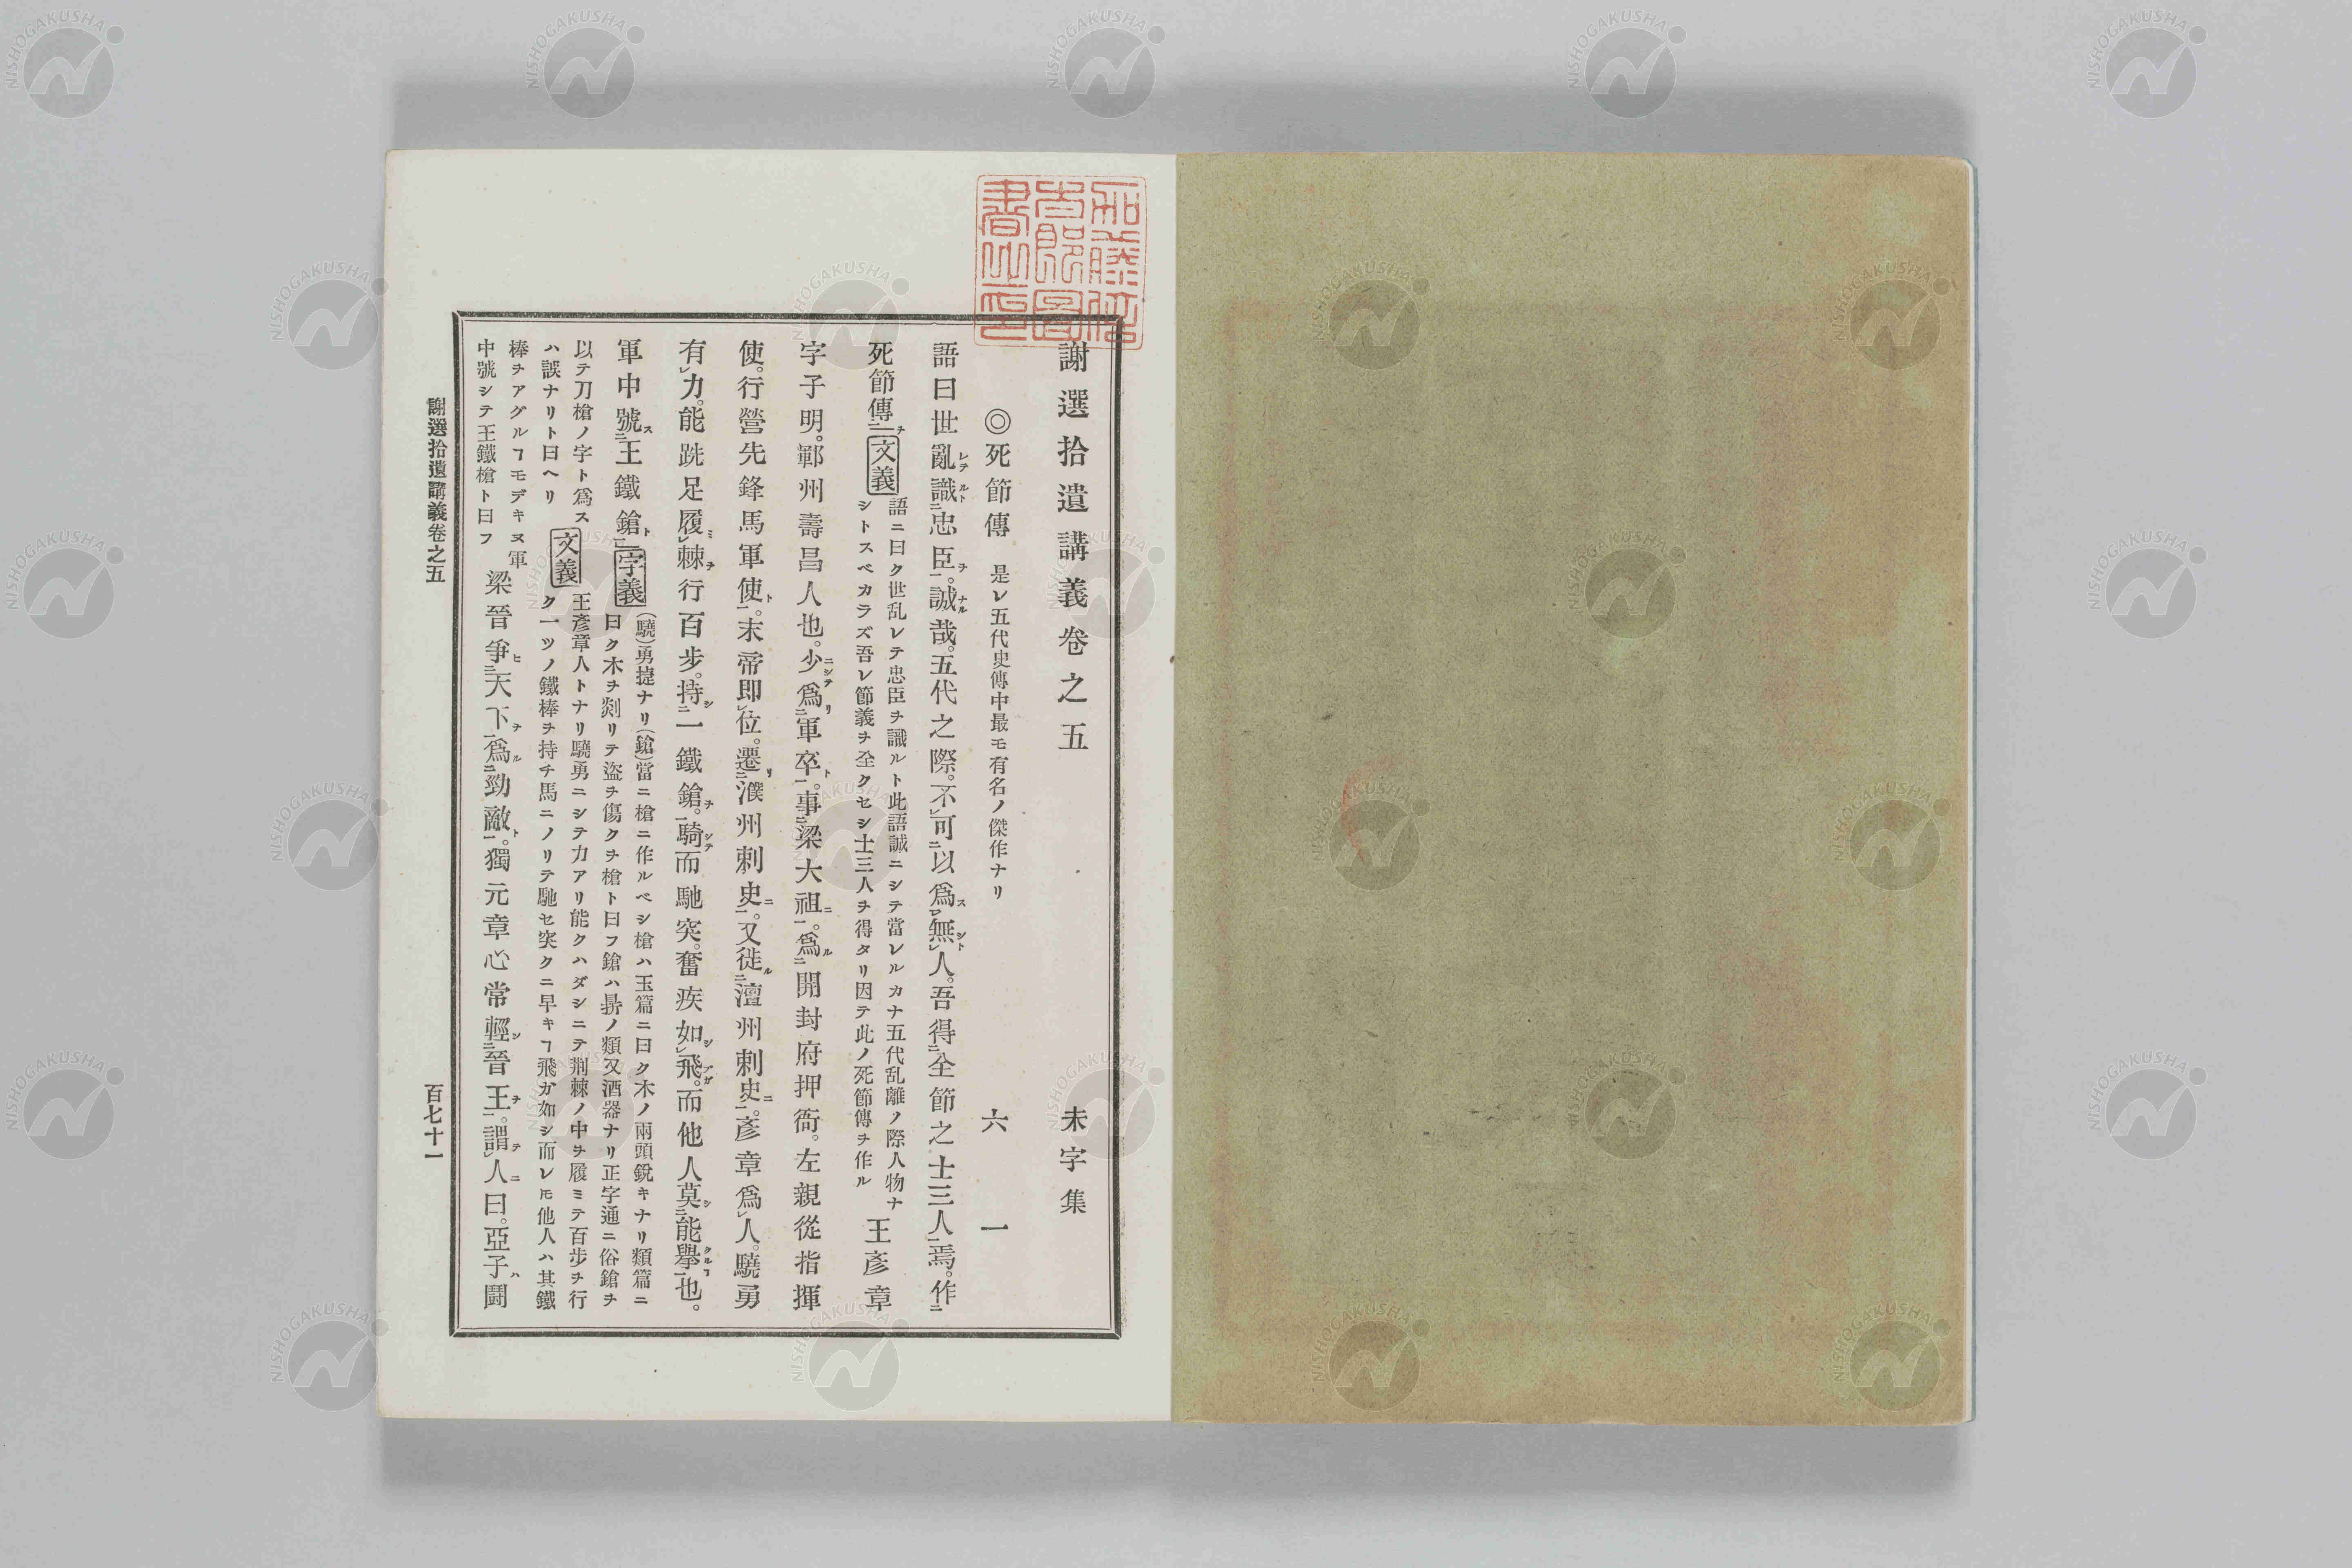 謝選拾遺講義卷之五　未字集
◎死節傳　是レ五代史傳中最モ有名ノ傑作ナリ　六　一
語曰世亂レテ識ルト忠臣ヲ。誠ナル哉。五代之際。不可以爲ス無シト人。吾得全節之士三人焉。作
死節傳ヲ 文義 語ニ曰ク世乱レテ忠臣ヲ識ルト此語誠ニシテ當レルカナ五代乱離ノ際人物ナ
シトスベカラズ吾レ節義ヲ全クセシ士三人ヲ得タリ因テ此ノ死節傳ヲ作ル　王彥章
字子明。鄆州壽昌人也。少ニシテ爲リ軍卒ト。事梁大祖ニ。爲ル開封府押衙。左親從指揮
使。行營先鋒馬軍使ト。末帝即位。遷リ濮州刺史ニ。又徙ル澶州刺史ニ。彥章爲人。驍勇
有力。能跣足履ミ棘ヲ行百步。持シ一鐵鎗ヲ。騎シテ而馳突。奮疾如シ飛。而他人莫シ能擧クルヿ也。
軍中號ス王鐵鎗ト 字義 (驍)勇捷ナリ(鎗)當ニ槍ニ作ルベシ槍ハ玉篇ニ曰ク木ノ兩頭銳キナリ類篇ニ
曰ク木ヲ剡リテ盜ヲ傷クヲ槍ト曰フ鎗ハ鼎ノ類又酒器ナリ正字通ニ俗鎗ヲ
以テ刀槍ノ字ト爲ス
ハ誤ナリト曰ヘリ 文義 王彥章人トナリ驍勇ニシテ力アリ能クハダシニテ荆棘ノ中ヲ履ミテ百步ヲ行
ク一ツノ鐵棒ヲ持チ馬ニノリテ馳セ突クニ早キヿ飛ガ如シ而レモ他人ハ其鐵
棒ヲアグルヿモデキヌ軍
中號シテ王鐵槍ト曰フ　梁晉爭ヒ天下ヲ爲ル勁敵ト。獨元章心常輕シ晉王ヲ。謂テ人ニ曰。亞子ハ鬪
謝選拾遺講義卷之五　百七十一